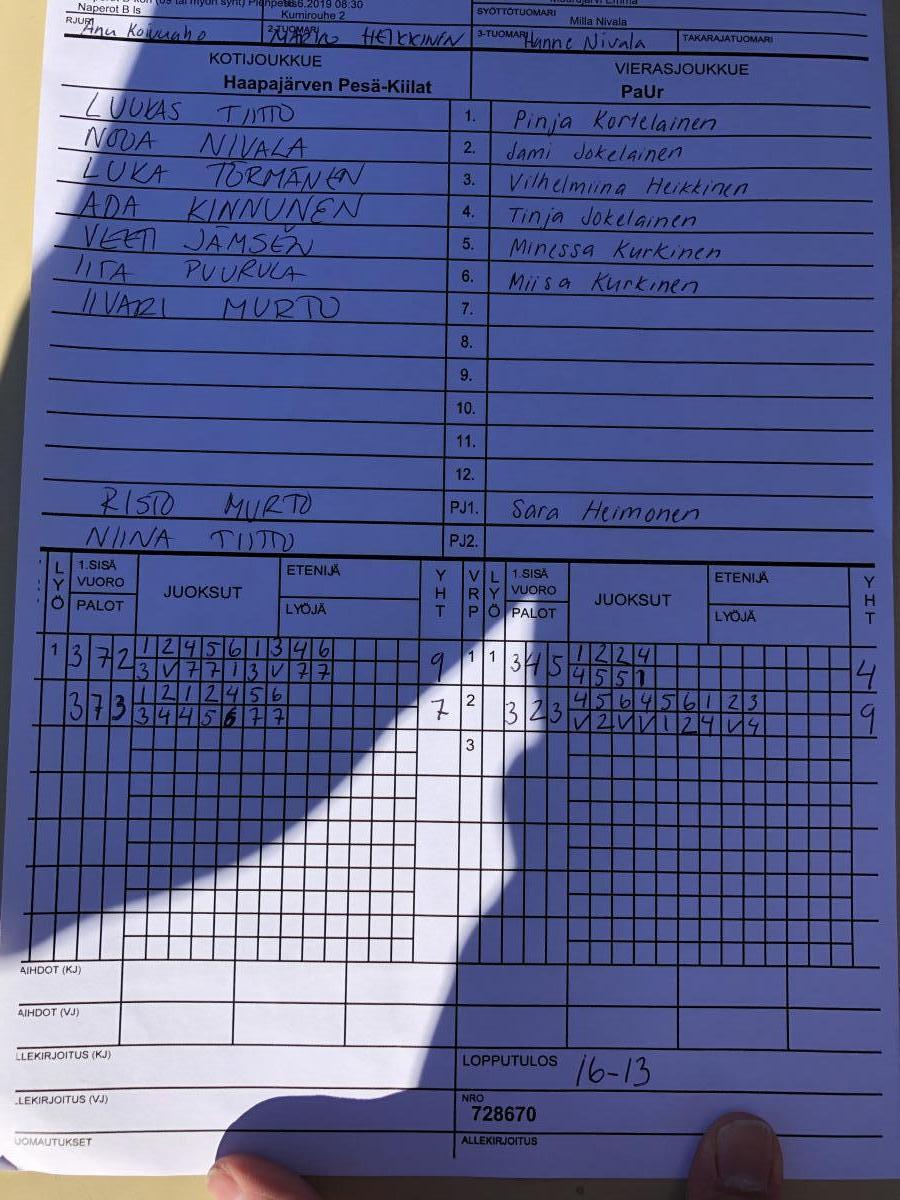 Naperot B Is
6.6.2019 08:30
Kumirouhe 2
SYÖTTÖTUOMARI
Milla Nivala
RJURI
Anu Koivuaho
2-TUOMARI
HEIKKINEN
3-TUOMARI
Hanne Nivala
TAKARAJATUOMARI
KOTIJOUKKUE
VIERASJOUKKUE
Haapajärven Pesä-Kiilat
PaUr
LUUKAS TIITTO 1. Pinja Kortelainen
NOOA NIVALA 2. Jami Jokelainen
LUKA TÖRMÄNEN 3. Vilhelmiina Heikkinen
ADA KINNUNEN 4. Tinja Jokelainen
VEETI JÄMSEN 5. Minessa Kurkinen
IITA PUURULA 6. Miisa Kurkinen
IIVARI MURTO 7.
8.
9.
10.
11.
12.
RISTO MURTO PJ1. Sara Heimonen
NIINA TIITTO PJ2.
LYÖ 1.SISÄ VUORO PALOT JUOKSUT ETENIJÄ LYÖJÄ YHT VRP LYÖ 1.SISÄ VUORO PALOT JUOKSUT ETENIJÄ LYÖJÄ YHT
1 3 7 2 1 2 4 5 6 1 3 4 6 9 1 1 3 4 5 1 2 2 4 4
3 V 7 7 1 3 V 7 7 4 5 5 1
3 7 3 1 2 1 2 4 5 6 7 2 3 2 3 4 5 6 4 5 6 1 2 3 9
3 4 4 5 6 7 7 V 2 V V 1 2 4 V 4
3
AIHDOT (KJ)
AIHDOT (VJ)
LLEKIRJOITUS (KJ)
LOPPUTULOS 16-13
LLEKIRJOITUS (VJ)
NRO
728670
UOMAUTUKSET
ALLEKIRJOITUS